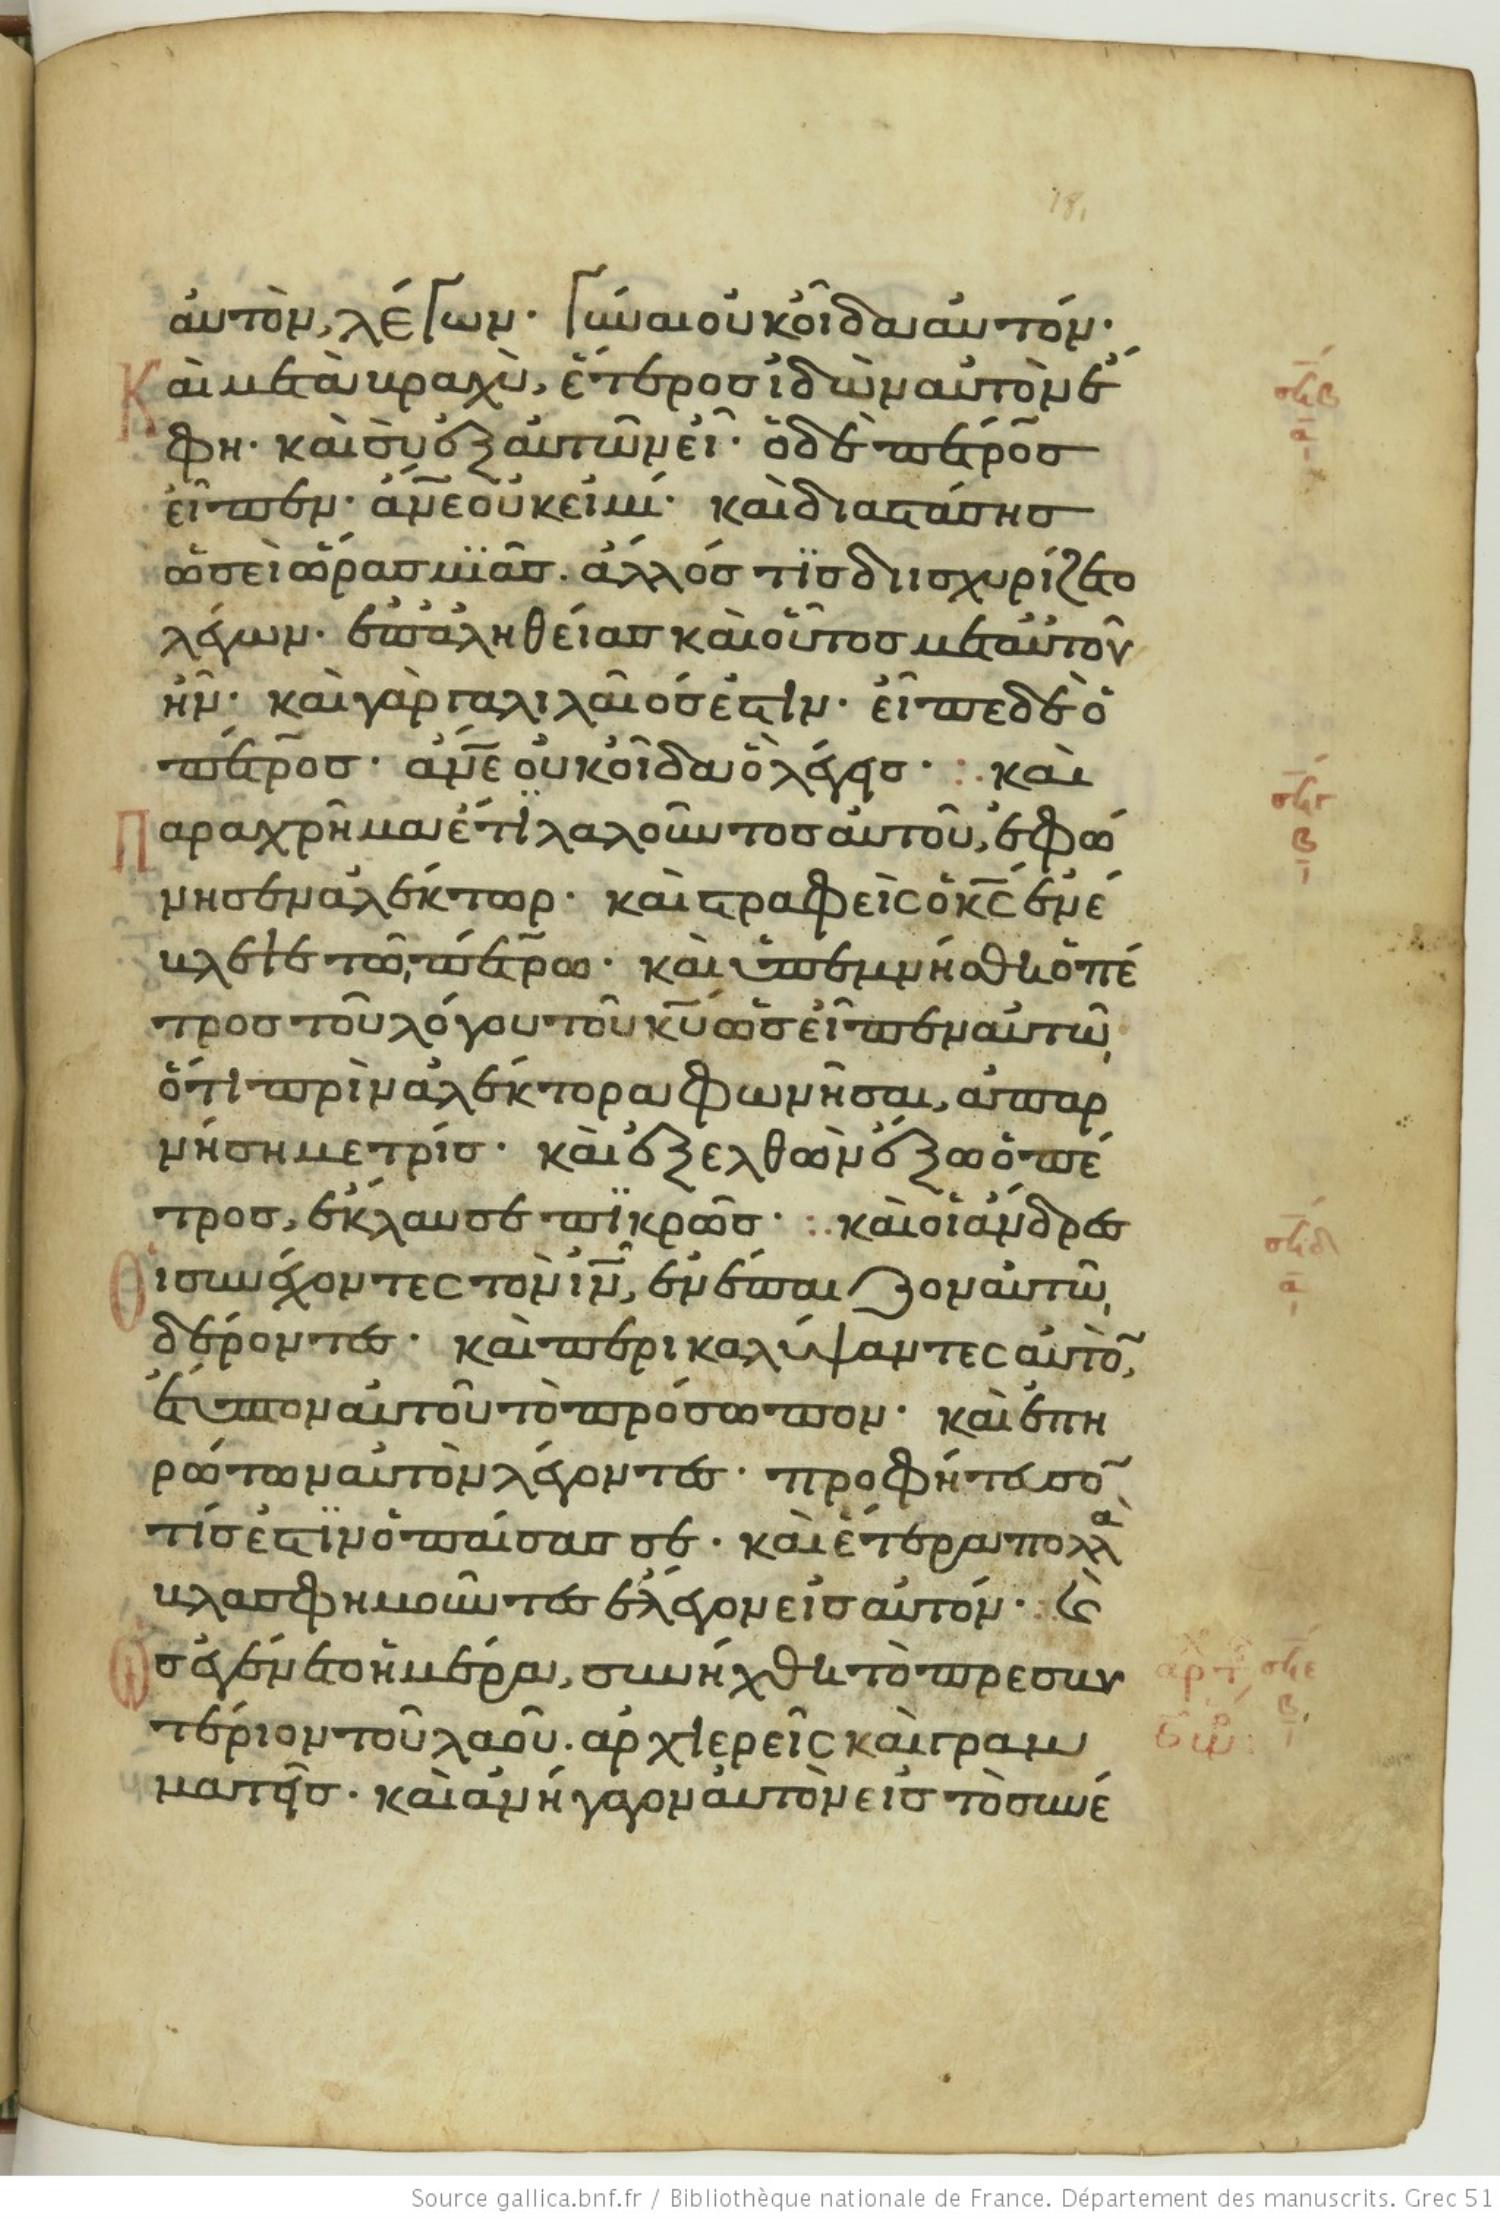 181
αὐτὸν, λέγων· γύναι οὐκ οἶδα αὐτόν·
Καὶ μετὰ βραχὺ, ἕτερος ἰδὼν αὐτὸν ἔ
φη· καὶ σὺ ἐξ αὐτῶν εἶ· ὁ δὲ πέτρος
εἶπεν· ἄνε οὐκ εἰμί· καὶ διαστάσης
ὡσεὶ ὥρας μϊᾶς. ἄλλός τϊς διϊσχυρίζετο
λέγων· ἐπἀληθείας καὶ οὗτος μετ αὐτοῦ
ἦν· καὶ γὰρ γαλιλαῖός ἐστιν· εἶπε δὲ ὁ
πέτρος· ἄνε οὐκ οἶδα ὃ λέγεις· :. καὶ
Παραχρῆμα ἔτϊ λαλοῦντος αὐτοῦ, ἐφώ
νησεν ἀλέκτωρ· καὶ στραφεὶς ὁ κς ἐνέ
βλεψε τῶ πέτρω· καὶ ὑπεμνήσθη ὁ πέ
τρος τοῦ λόγου τοῦ κυ ὡς εἶπεν αὐτῶ
ὅτι πρὶν ἀλέκτορα φωνῆσαι, ἀπαρ
νήση με τρίς· καὶ ἐξελθὼν ἔξω ὁ πέ
τρος, ἔκλαυσε πϊκρῶς· :. καὶ οἱ ἄνδρες
Οἱ συνέχοντες τὸν ιν, ἐνέπαιζον αὐτῶ
δέροντες· καὶ περικαλύψαντες αὐτὸ,
ἔτυπτον αὐτοῦ τὸ πρόσωπον· καὶ ἐπη
ρώτων αὐτὸν λέγοντες· προφήτευσο
τίς ἐστϊν ὁ παίσας σε· καὶ ἕτερα πολλὰ
βλασφημοῦντες ἔλεγον εἰς αὐτόν· :. καὶ
Ὡς ἐγένετο ἡμέρα, συνήχθη τὸ πρεσβυ
τέριον τοῦ λαοῦ. ἀρχιερεῖς καὶ γραμ
ματεῖς· καὶ ἀνήγαγον αὐτὸν εἰς τὸ συνέ
Source gallica.bnf.fr / Bibliothèque nationale de France. Département des manuscrits. Grec 51